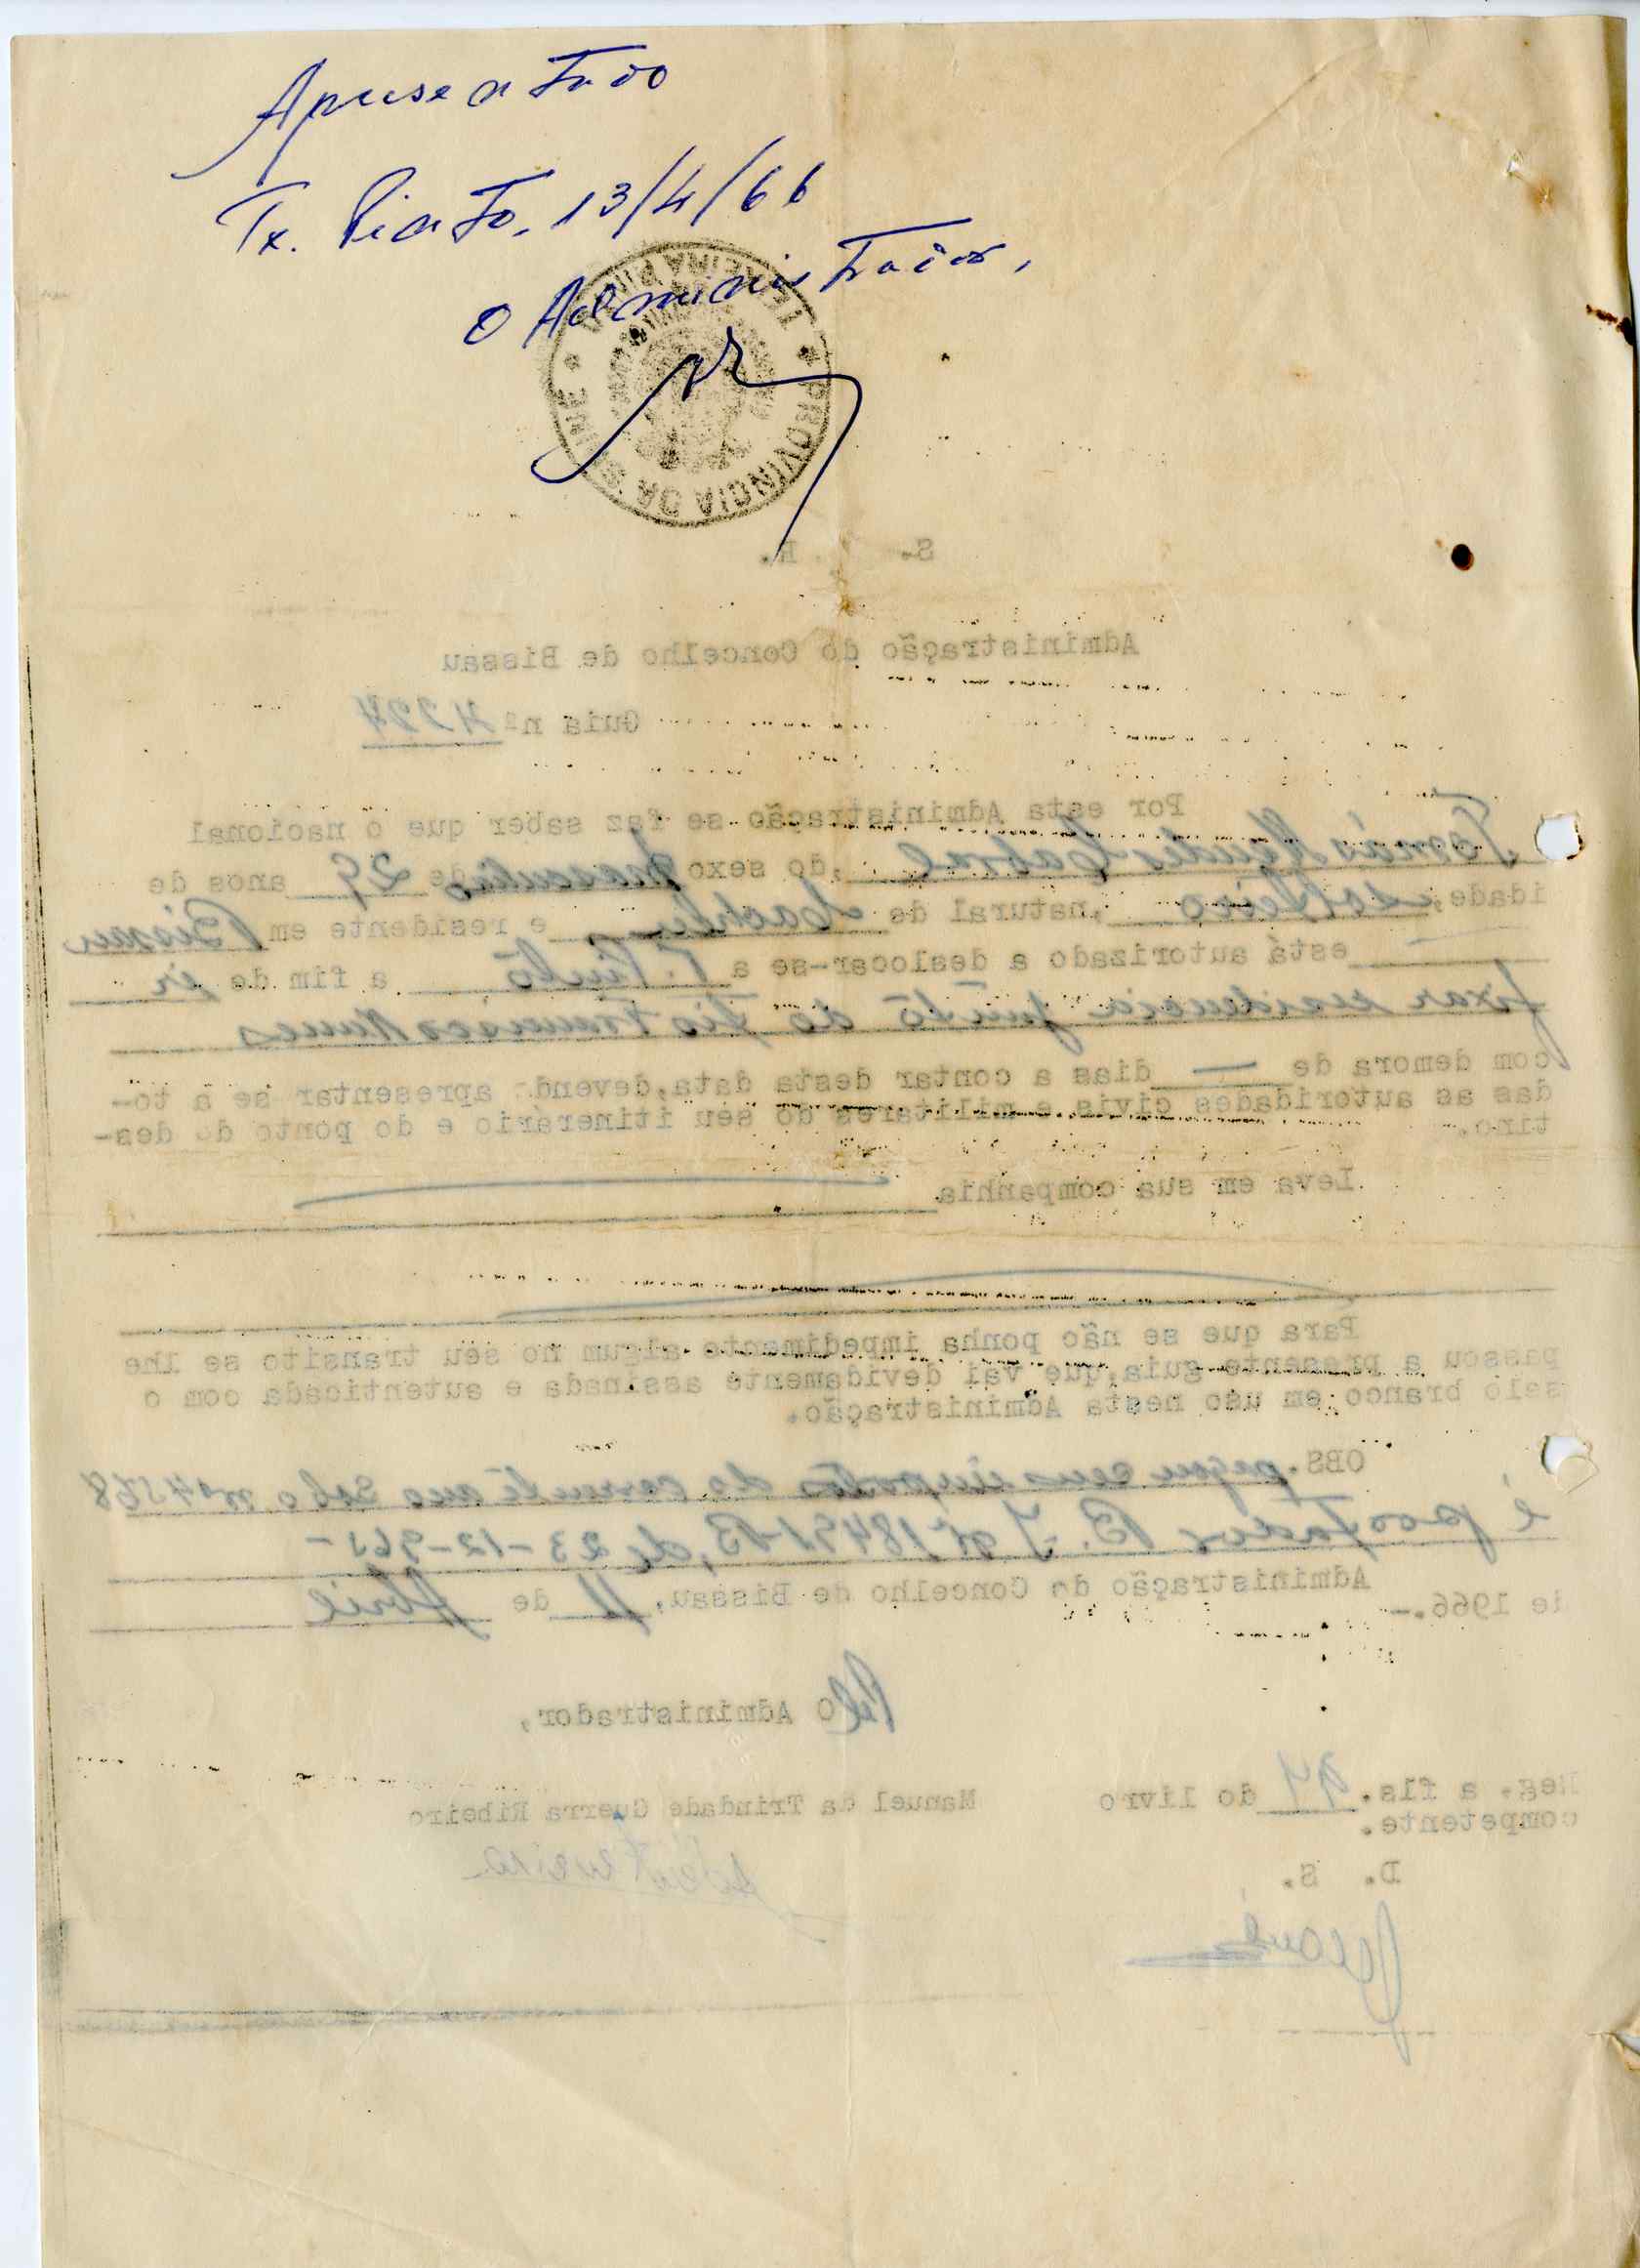 Apresentado
Tx. Pinto, 13/4/66
O Administrador,
PROVINCIA DA GUINE
S. R.
Administração do Concelho de Bissau
Guia nº
Por esta Administração se faz saber que o nacional
Tomás Mendes Cabral, do sexo masculino de 29 anos de
idade, solteiro, natural de Cacheu e residente em Bissau
está autorizado a deslocar-se a T. Pinto a fim de ir
fixar residencia junto do tio Francisco Nunes
com demora de — dias a contar desta data, devendo apresentar se a to-
das as autoridades civis e militares do seu itinerário e do ponto do des-
tino.
Leva em sua companhia
Para que se não ponha impedimento algum no seu transito se lhe
passou a presente guia, que vai devidamente assinada e autenticada com o
selo branco em uso nesta Administração.
OBS. pagou seus impostos do corrente ano sob o nº 4568
é portador B. I nº 18491-B, de 23-12-965-
Administração do Concelho de Bissau, 11 de Abril
de 1966.-
Pelo Administrador,
Manuel da Trindade Guerra Ribeiro
Reg. a fls. do livro
competente.
D. S.